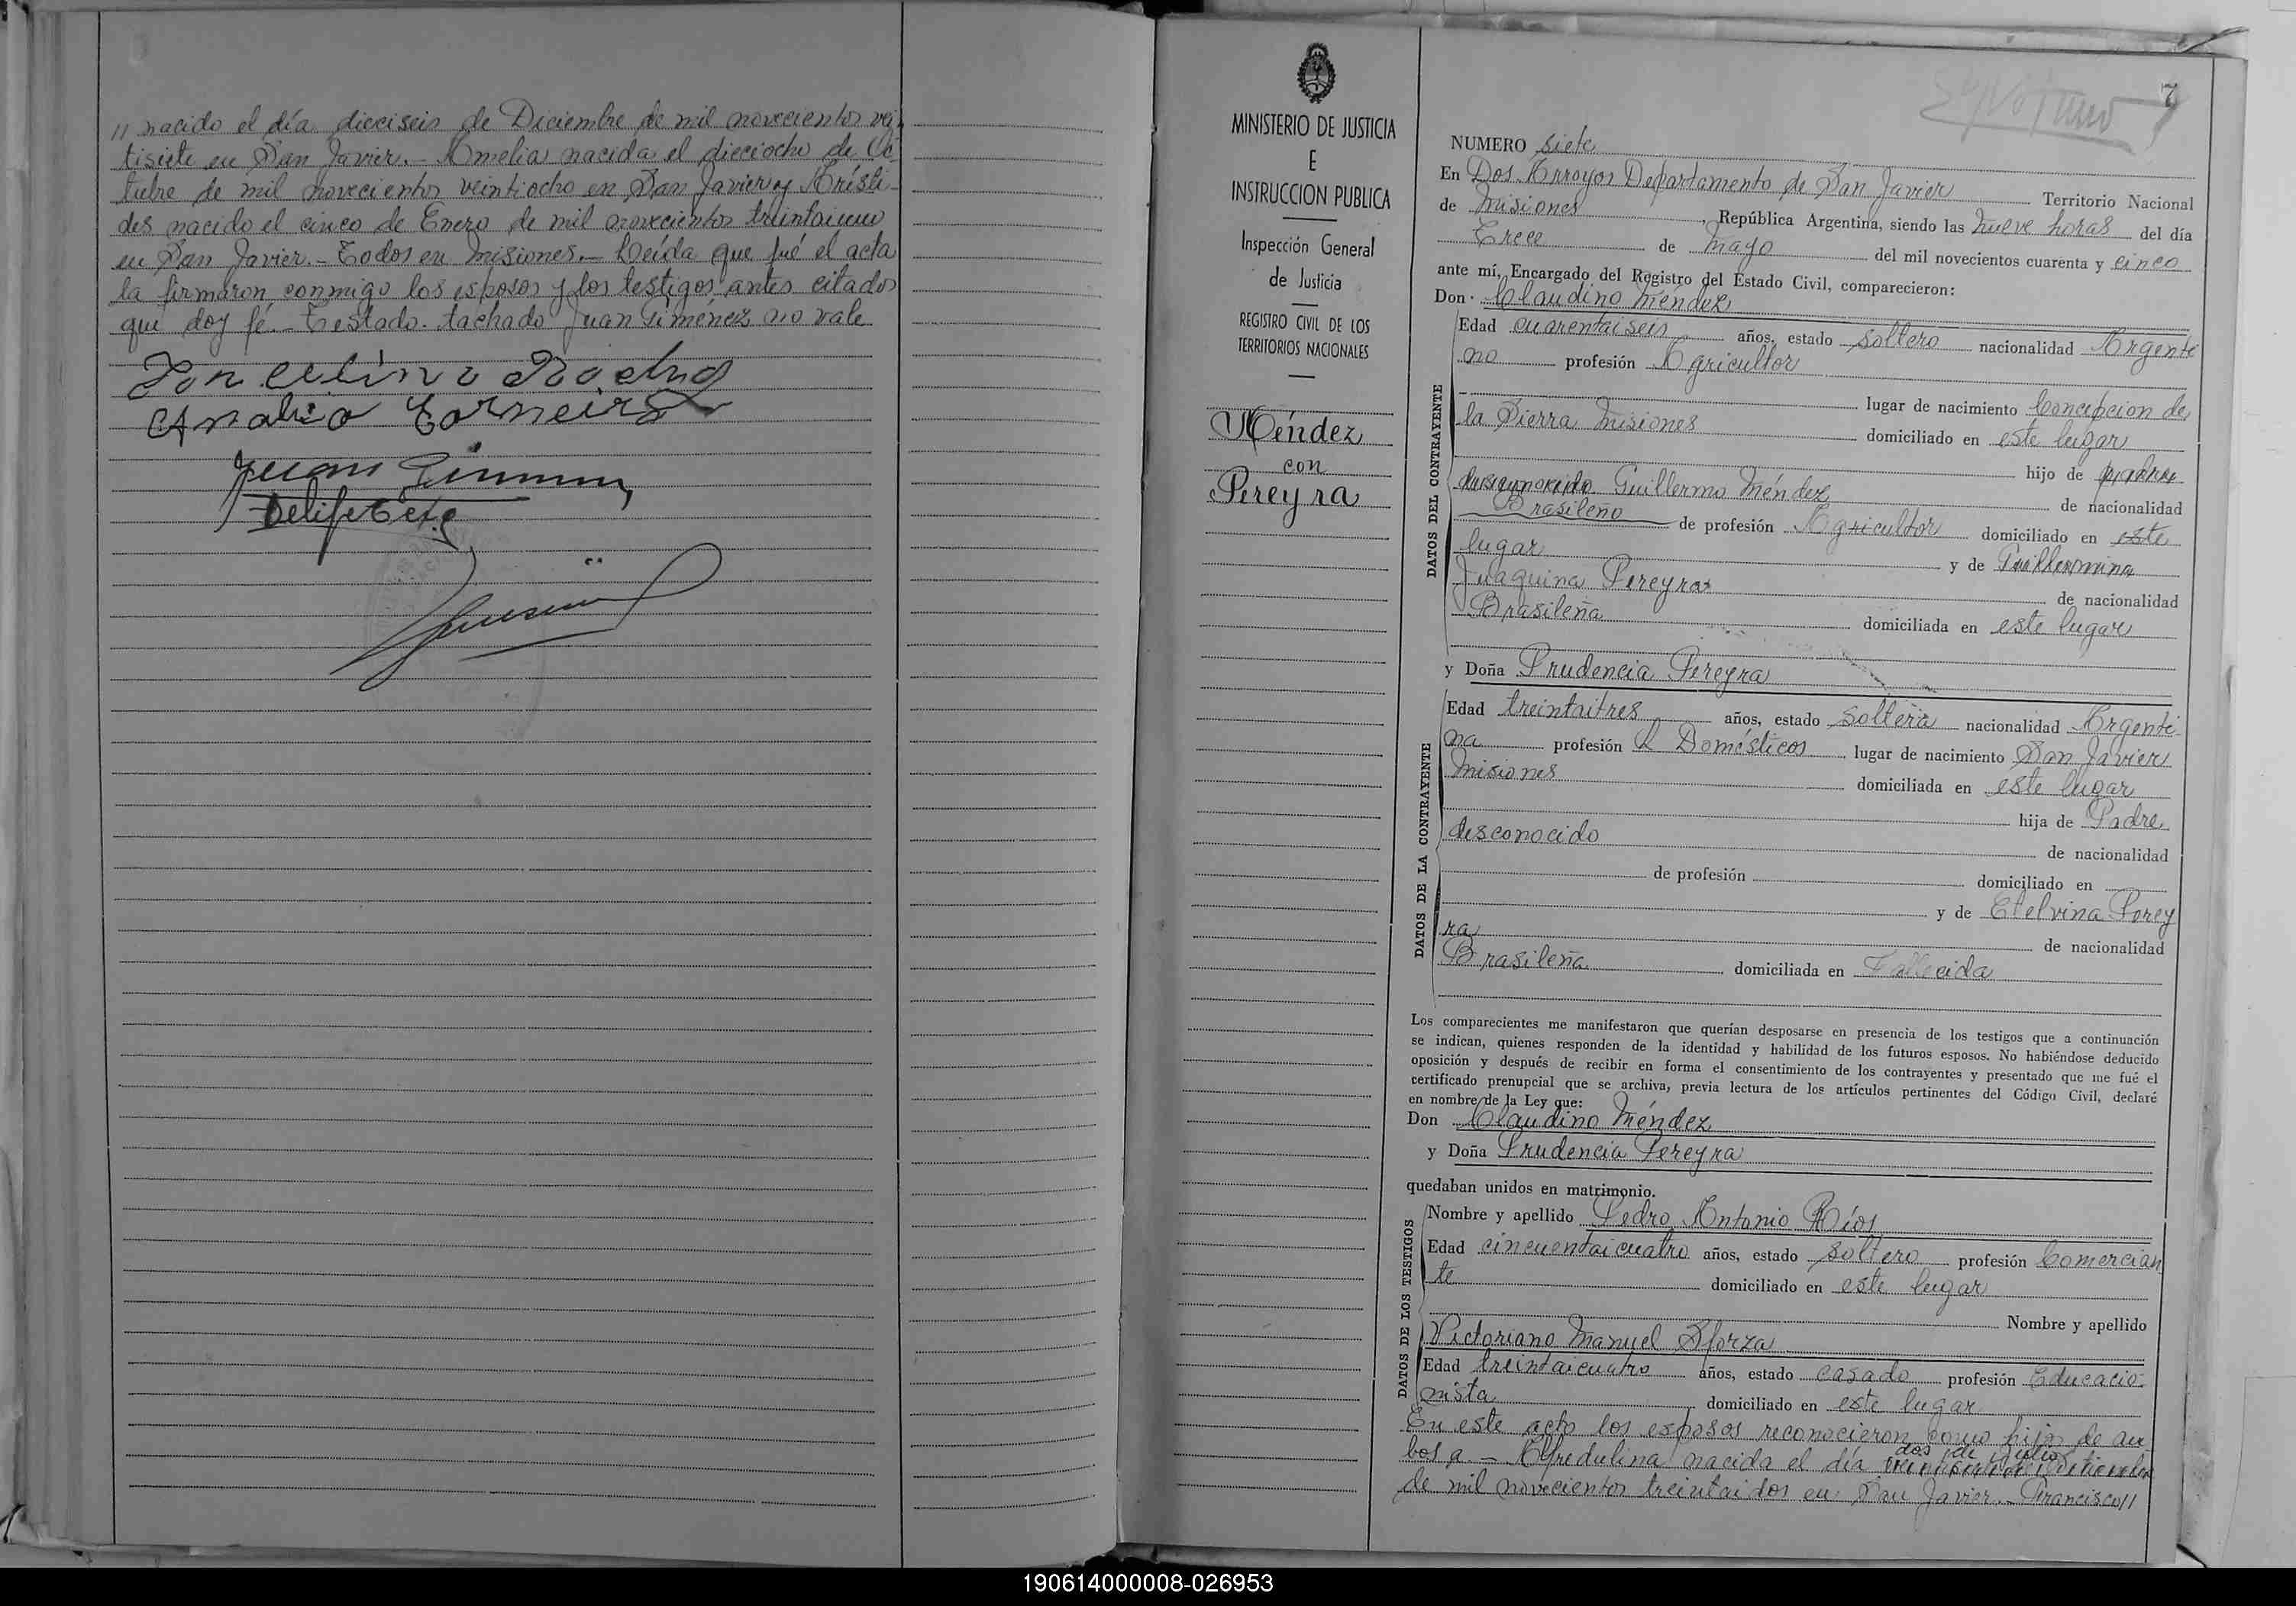 // nacido el día dieciseis de Diciembre de mil novecientos vein
tisiete en San Javier.- Amelia nacida el dieciocho de Oc
tubre de mil novecientos veintiocho en San Javier y Aristi-
des nacido el cinco de Enero de mil novecientos treintaiuno
en San Javier.- Todos en Misiones.- Leída que fué el acta
la firmaron conmigo los esposos y los testigos antes citados
que doy fé.- Testado. tachado Juan Giménez no vale
Juan
MINISTERIO DE JUSTICIA
E
INSTRUCCION PUBLICA
Inspección General
de Justicia
REGISTRO CIVIL DE LOS
TERRITORIOS NACIONALES
Méndez
con
Pereyra
7
NUMERO siete
En Dos Arroyos Departamento de San Javier Territorio Nacional
de Misiones, República Argentina, siendo las nueve horas del día
Trece de Mayo del mil novecientos cuarenta y cinco
ante mí, Encargado del Registro del Estado Civil, comparecieron:
Don Claudino Méndez
DATOS DEL CONTRAYENTE
Edad cuarentaiseis años, estado soltero nacionalidad Argenti
no profesión Agricultor
lugar de nacimiento Concepcion de
la Sierra Misiones domiciliado en este lugar
hijo de padre
desconocido Guillermo Méndez de nacionalidad
Brasileño de profesión Agricultor domiciliado en este
lugar y de Guillermina
Juaquina Pereyra de nacionalidad
Brasileña domiciliada en este lugar
y Doña Prudencia Pereyra
DATOS DE LA CONTRAYENTE
Edad treintaitres años, estado soltera nacionalidad Argenti-
na profesión Q Domésticos lugar de nacimiento San Javier
Misiones domiciliada en este lugar
hija de Padre
desconocido de nacionalidad
de profesión domiciliado en
y de Etelvina Perey
ra de nacionalidad
Brasileña domiciliada en Fallecida
Los comparecientes me manifestaron que querían desposarse en presencia de los testigos que a continuación
se indican, quienes responden de la identidad y habilidad de los futuros esposos. No habiéndose deducido
oposición y después de recibir en forma el consentimiento de los contrayentes y presentado que me fué el
certificado prenupcial que se archiva, previa lectura de los artículos pertinentes del Código Civil, declaré
en nombre de la Ley que:
Don Claudino Méndez
y Doña Prudencia Pereyra
quedaban unidos en matrimonio.
DATOS DE LOS TESTIGOS
Nombre y apellido Pedro Antonio Ríos
Edad cincuentaicuatro años, estado soltero profesión Comercian
te domiciliado en este lugar
Nombre y apellido
Victoriano Manuel Sforza
Edad treintaicuatro años, estado casado profesión Educacio-
nista domiciliado en este lugar
En este acto los esposos reconocieron como hijo de am
bos a - Alfredulina nacida el día dos de Julio
de mil novecientos treintaidos en San Javier.- Francisco//
190614000008-026953